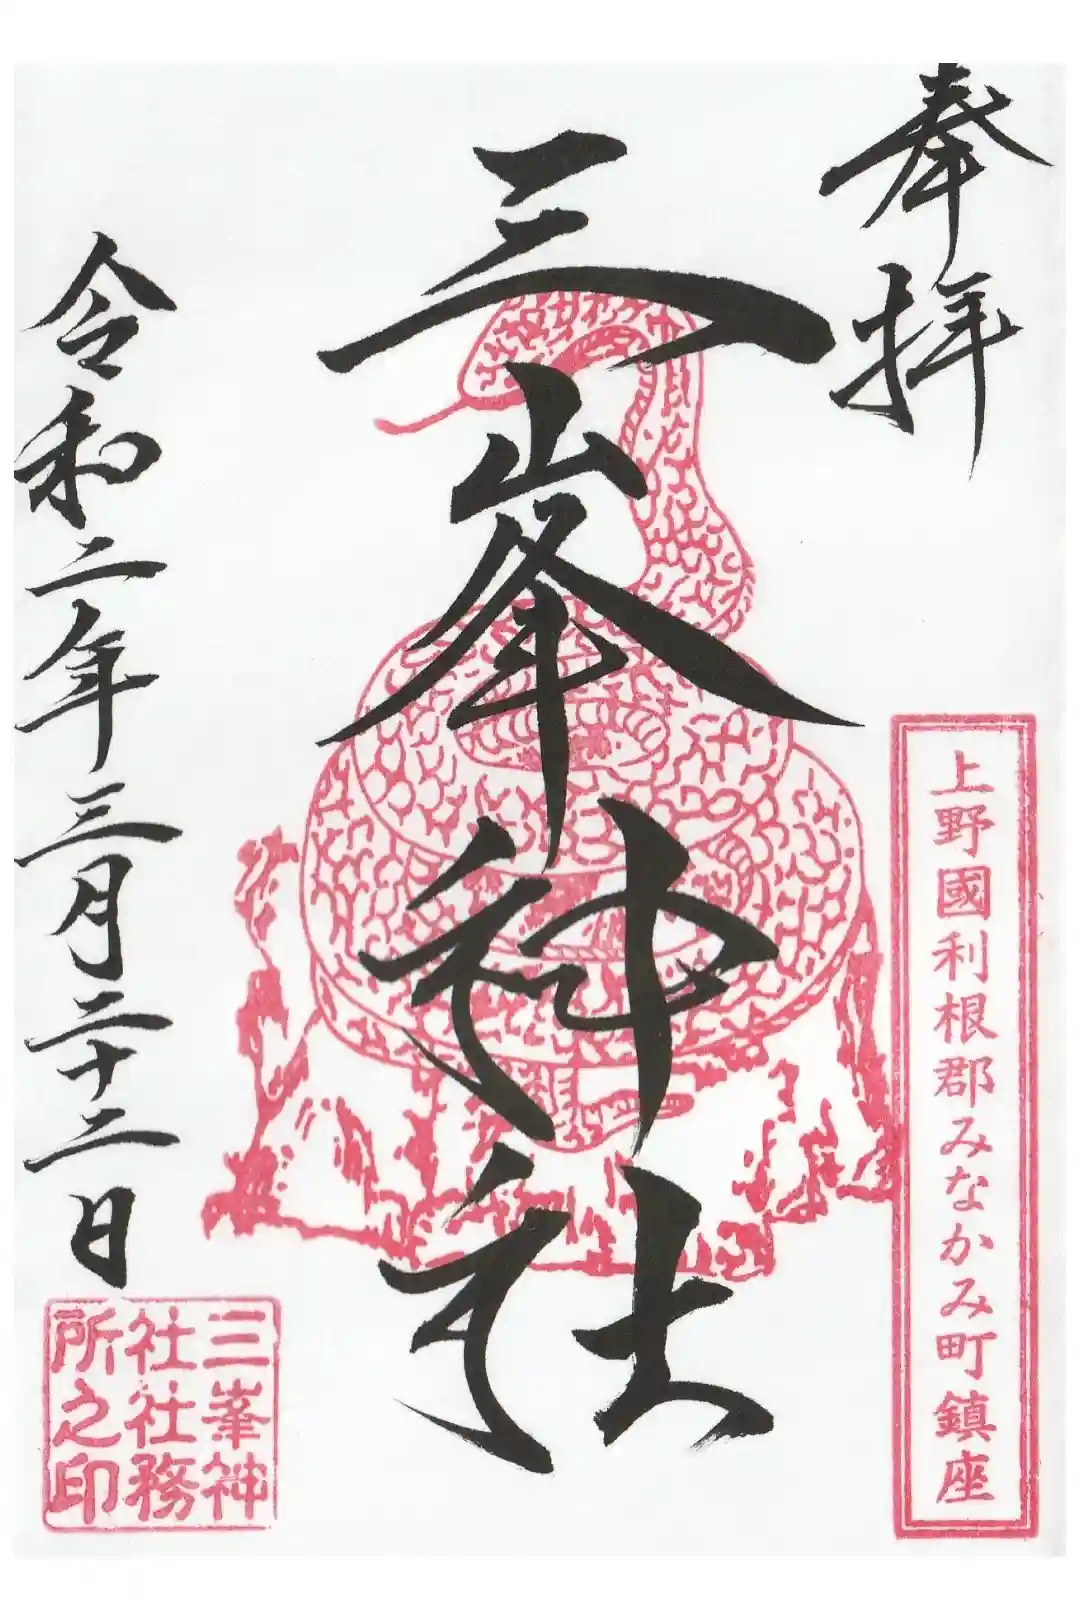 奉拝
三峯神社
上野國利根郡みなかみ町鎮座
令和二年三月二十二日
三峯神
社社務
所之印